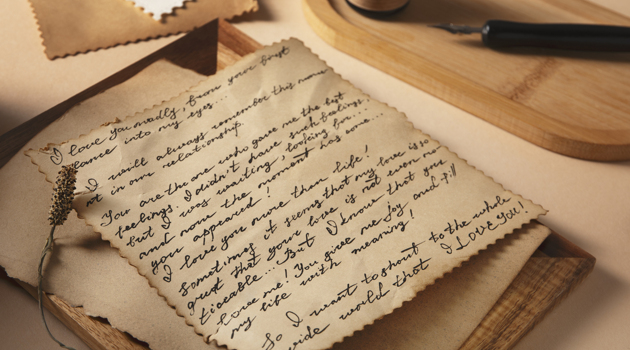 I love you madly, from your first
glance into my eyes...
I will always remember this mom
nt in our relationship.
You are the one who gave me the best
feelings. I didn't have such feelings...
but I was waiting, looking for...
and now the moment has come...
you appeared!
I love you more than life!
Sometimes it seems that my love is so
great that your love is not even no
ticeable... But I know that you
love me! You give me joy and fill
my life with meaning!
So I want to shout to the whole
wide world that I LOVE YOU!